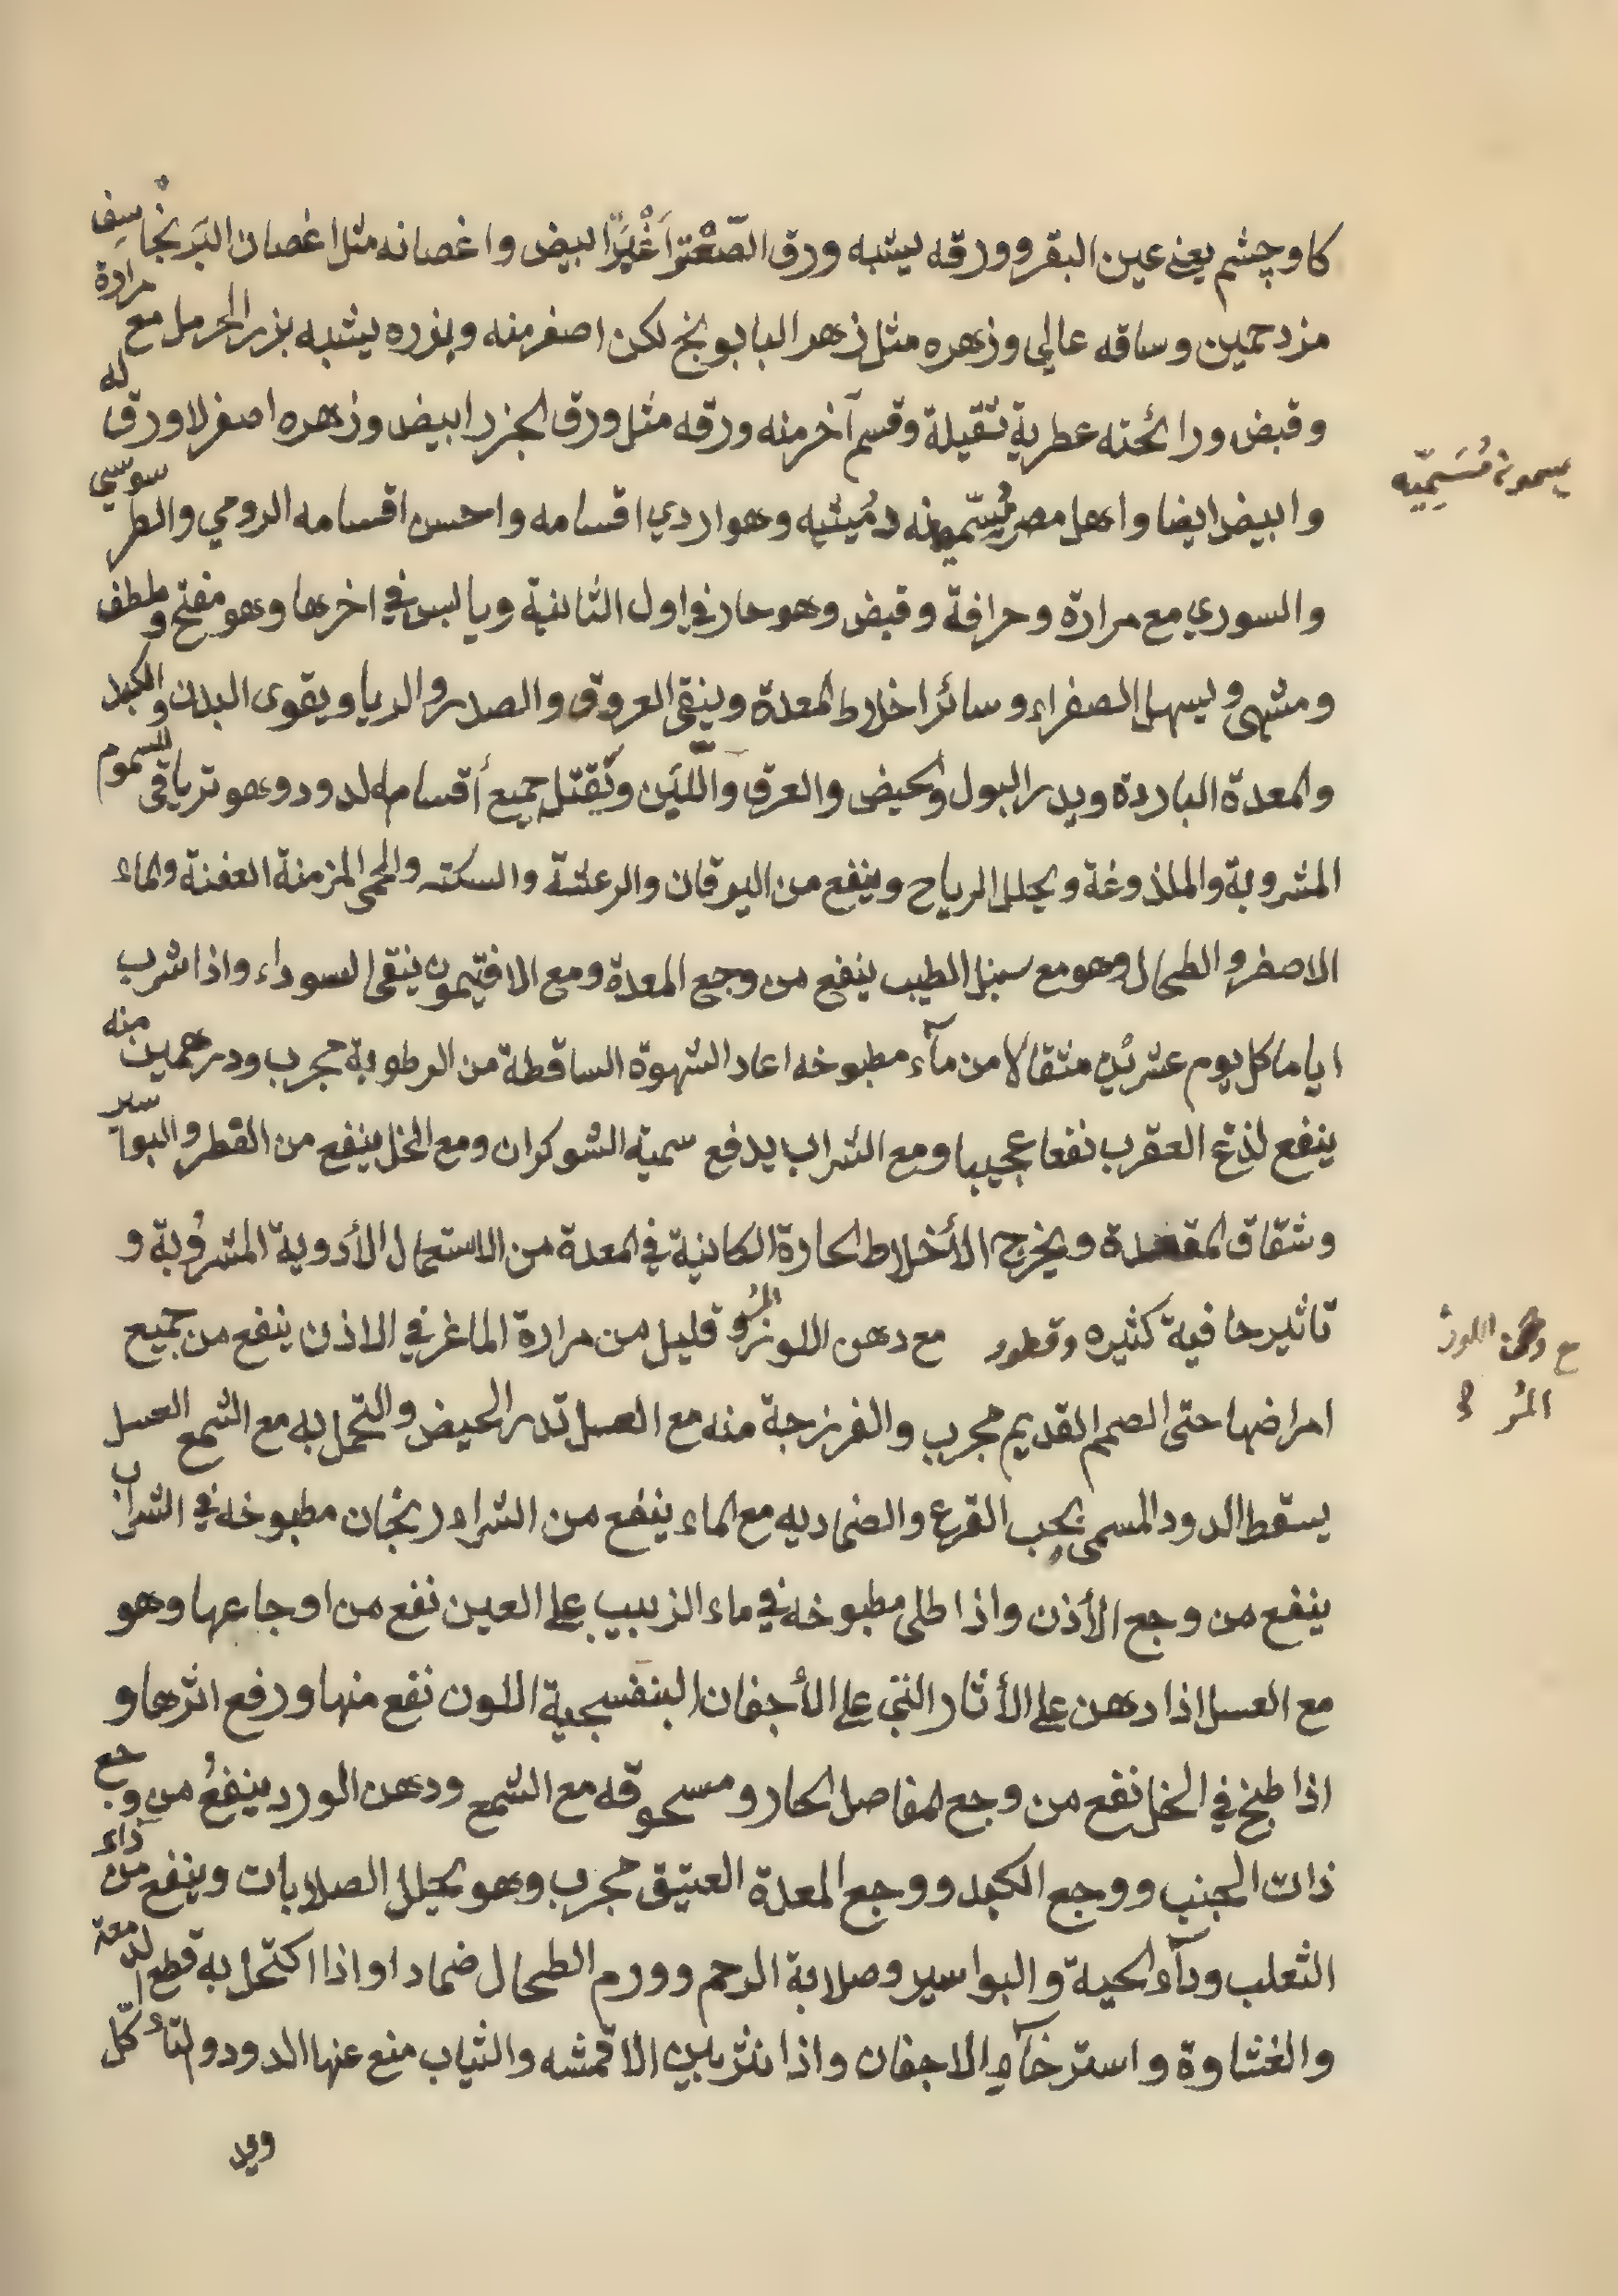 كاوچشم يعني عين البقر وورقه يشبه ورق الصّعْتر أَغْبَرًا ابيض واغصانه مثل اغصان البَرنجاسِف
مزدحمين وساقه عالي وزهره مثل زهر البابونج لكن اصفر منه وبزره يشبه بزر الحرمل مع مرارة
وقبض ورائحته عطرية ثقيلة وقسم آخر منه ورقه مثل ورق الجزر ابيض وزهره اصفر لا ورق له
وابيض ايضا واهل مصر يُسَمّونه دمُيثيه وهو اردي اقسامه واحسن اقسامه الرومي والطرسوسي
والسوري مع مرارة وحرافة وقبض وهو حار في اول الثانية ويابس في اخرها وهو مفتح وملطف
ومشهى ويسهل الصفراء وسائر اخلاط المعدة وينقى العروق والصدر والريا ويقوى البدن والكبد
والمعدة الباردة ويدر البول والحيض والعرق واللّبَن وتَقتل جميع أقسام الدود وهو ترياقى للسموم
المشروبة والملذوغة ويحلل الرياح وينفع من اليرقان والرعشة والسكته والحمى المزمنة العفنة والماء
الاصفر والطحال وهو مع سنبل الطيب ينفع من وجع المعدة ومع الافتيمون ينقى السوداء واذا شرب
اياما كل يوم عشرين مثقالا من مآء مطبوخه اعاد الشهوة الساقطة من الرطوبة مجرب ودرهمين منه
ينفع لذغ العقرب نفعا عجيبا ومع الشراب يدفع سمية الشوكران ومع الخل ينفع من الفطر والبواسير
وشقاق المقعدة ويخرج الأخلاط الحارة الكاينة في المعدة من الاستعمال الأدوية المشروُبة و
تاثير حافية كثيره وقطور مع دهن اللوز المُر وقليل من مرارة الماغر في الاذن ينفع من جميع
امراضها حتى الصمم القديم مجرب والفرزجة منه مع العسل تدر الحيض والتحمل به مع الشمع العسل
يسقط الدود المسمى بحب القرع والضماد به مع الماء ينفع من الشرا در نجان مطبوخه في الشراب
ينفع من وجع الأذن واذا طلى مطبوخه في ماء الزبيب على العين نفع من اوجاعها وهو
مع العسل اذا دهن على الأثار التي على الأجفان البنفسجية اللون نفع منها ورفع اثرها و
اذا طبخ في الخل نفع من وجع المفاصل الحار ومسحوقه مع الشمع ودهن الورد ينفعُ من وجع
ذات الجنب ووجع الكبد ووجع المعدة العتيق مجرب وهو يحلل الصلابات وينفع من دآء
الثعلب ودآء الحية والبواسير وصلابة الرحم وورم الطحال ضمادا واذا اكتحل به قطع الدمعة
والغشاوة واسترخآء الاجفان واذا نثر بين الاقمشه والثياب منع عنها الدود ولتأكّل
ويد
يسمونه مُسَيمِّيه
ع دهن اللوز
المُر